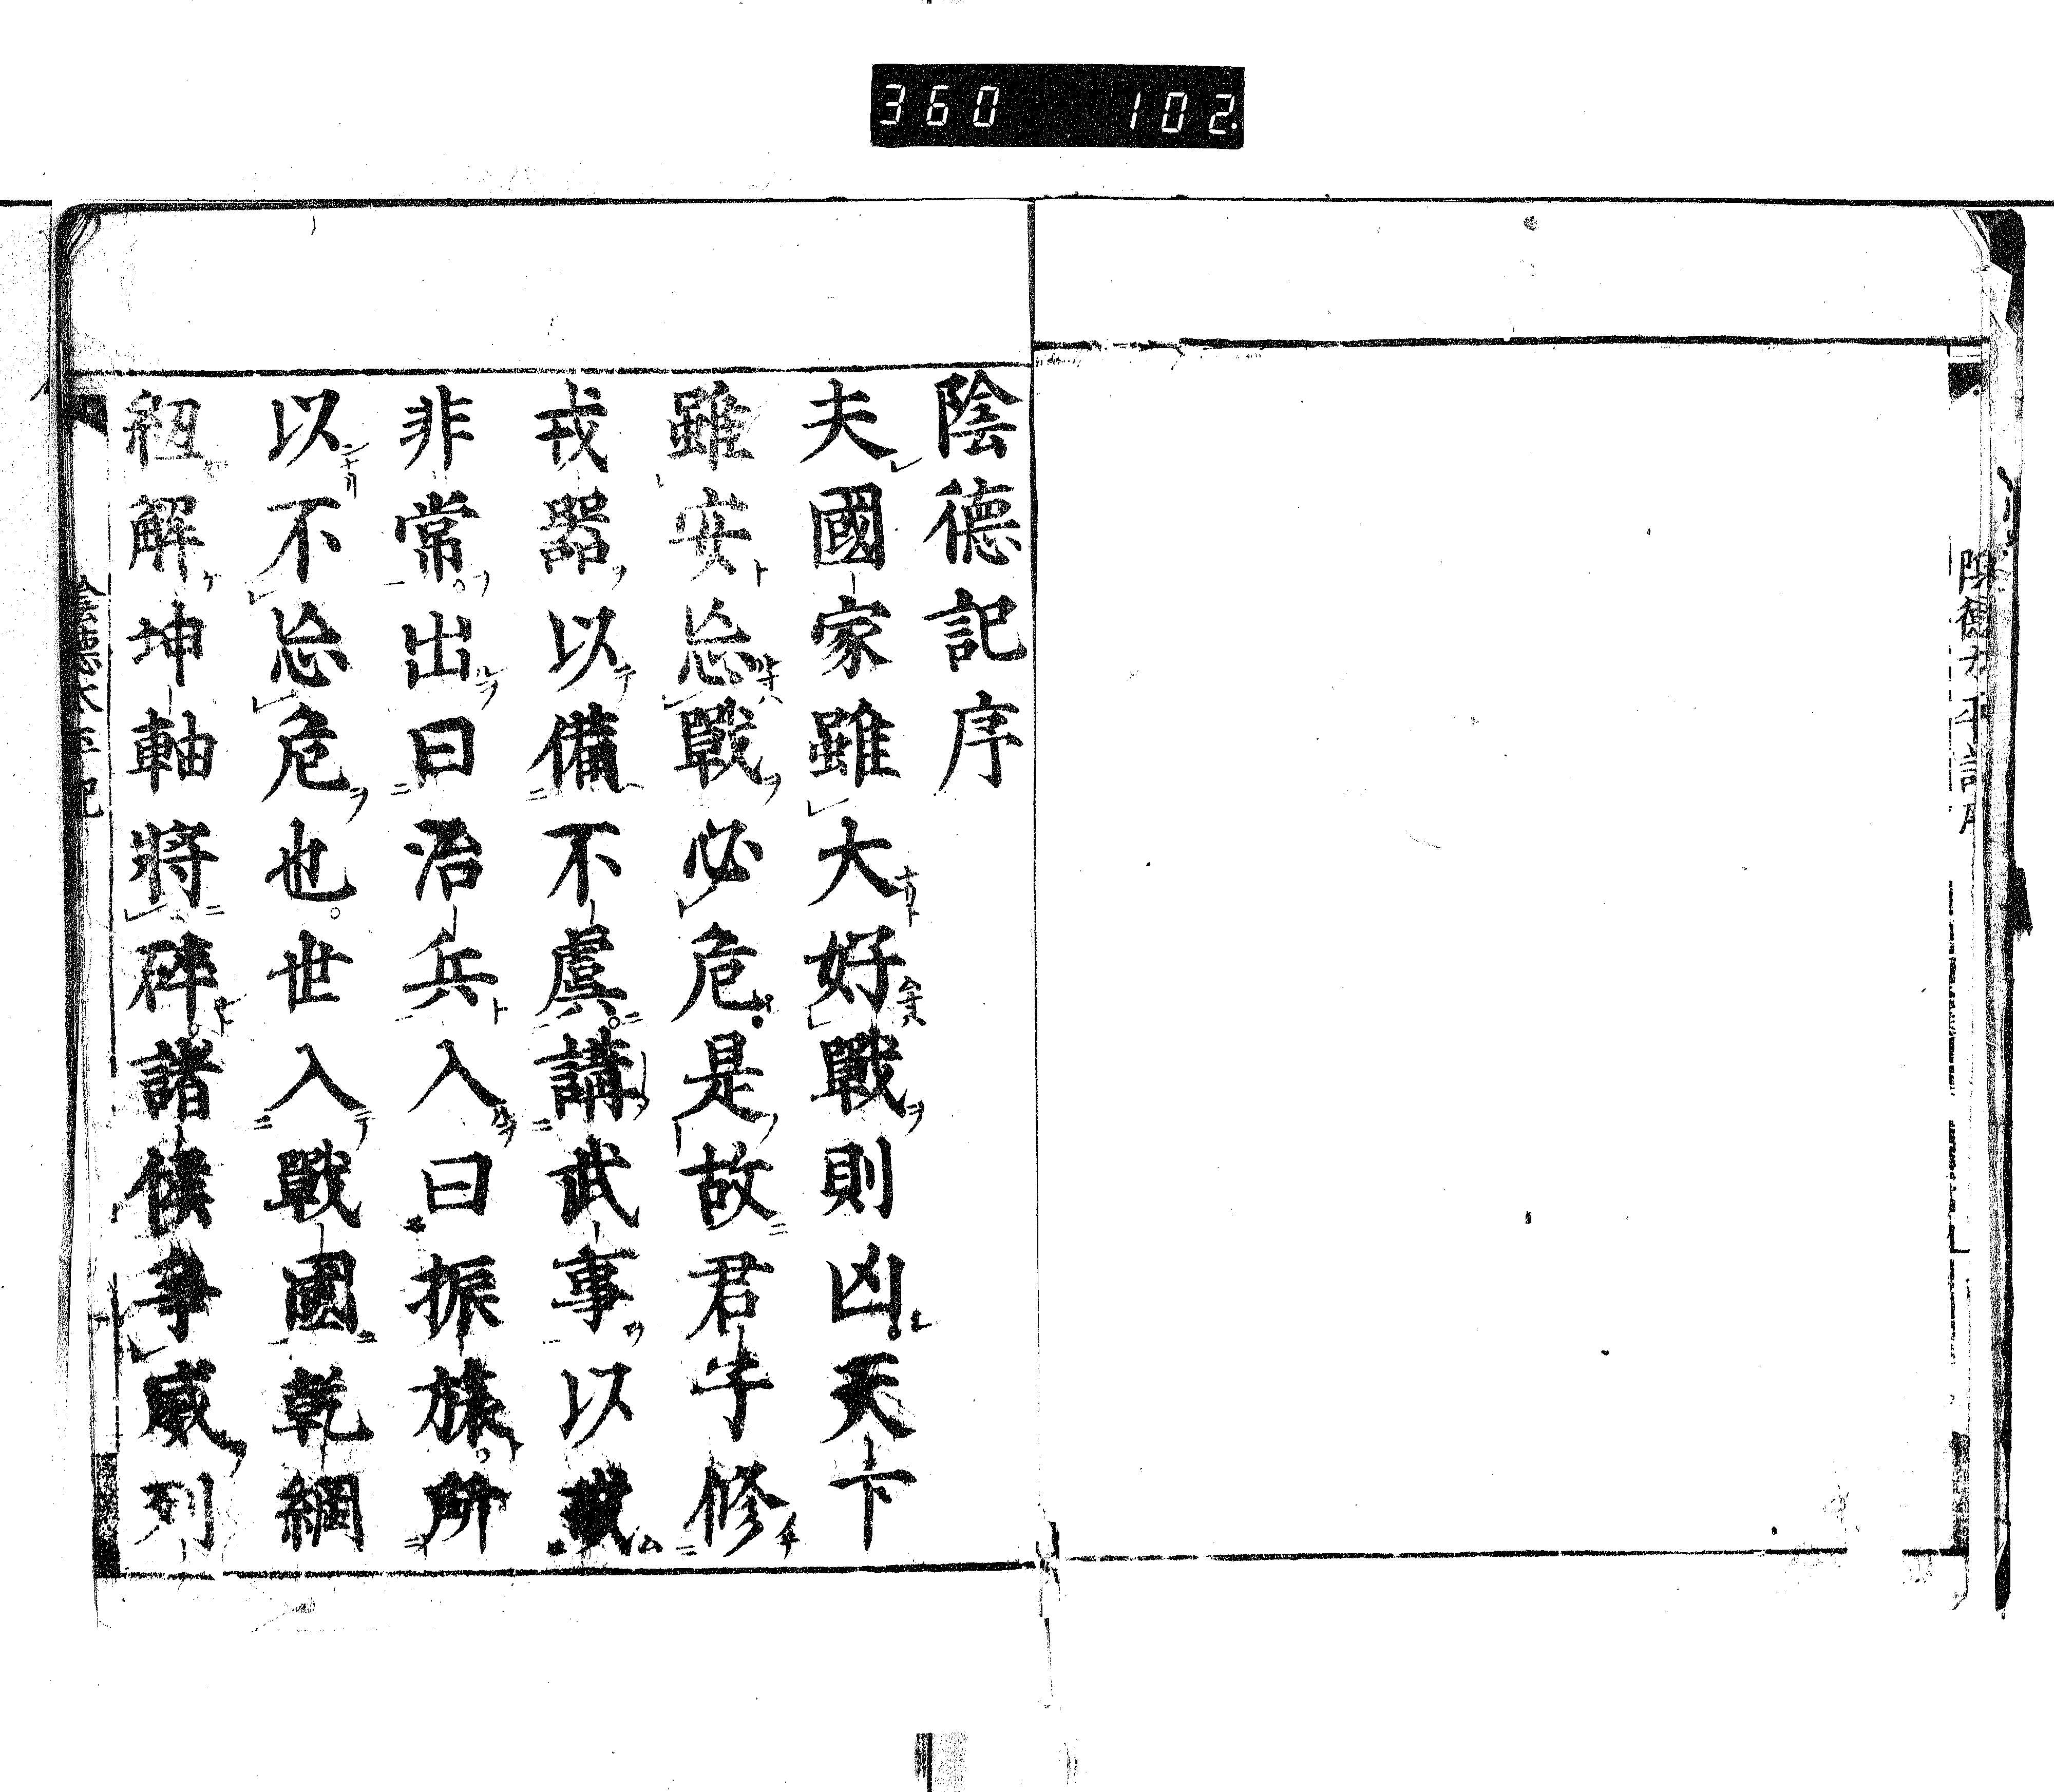 360 102
陰德太平記序
陰德記序
夫國家雖大好戰則凶天下
雖安忘戰必危是故君子修
戎器以備不虞講武事以戒
非常出曰治兵入曰振旅所
以不忘危也世入戰國乾綱
紐解坤軸將碎諸侯爭威列
陰德太平記